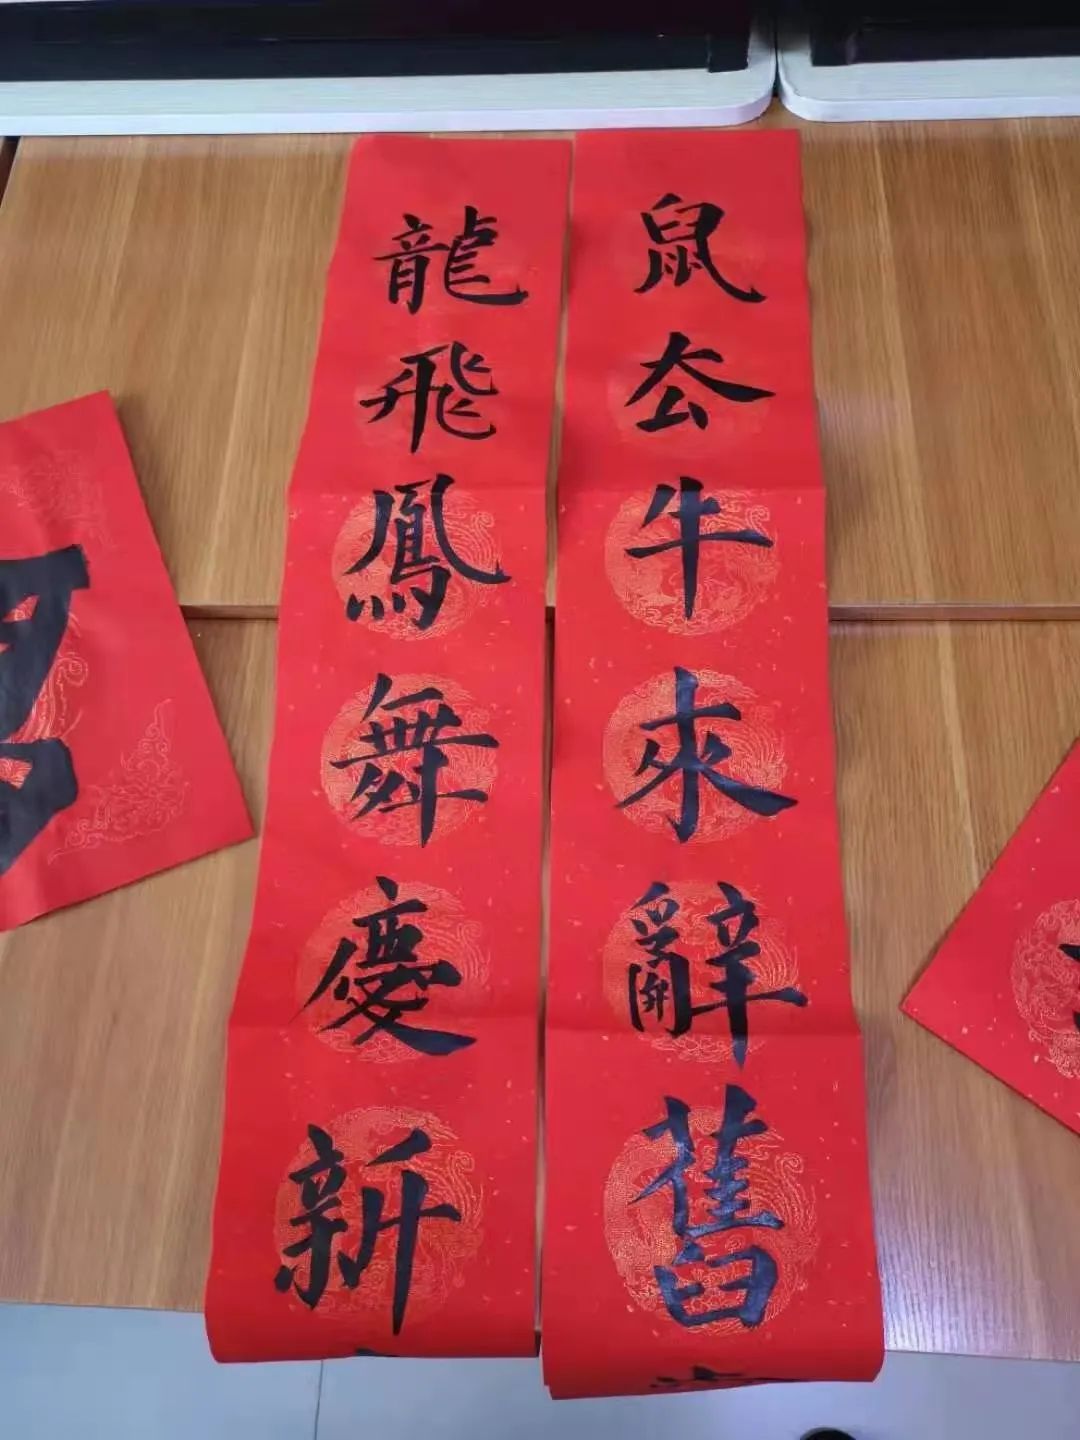 鼠厺牛來辭舊
龍飛鳳舞慶新